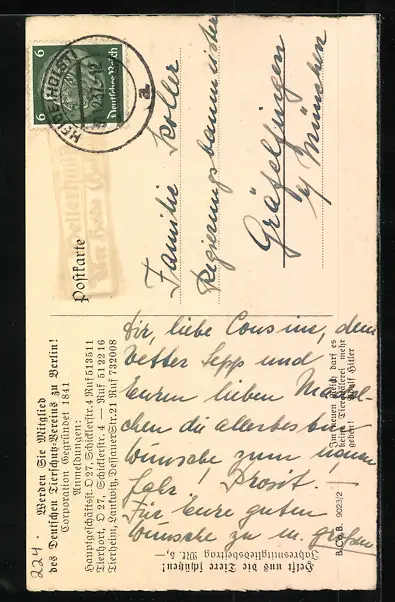 224.
Werden Sie Mitglied
des Deutschen Tierschutz-Vereins zu Berlin!
Corporation Gegründet 1841
Anmeldungen:
Hauptgeschäftsst. O 27, Schicklerstr. 4 Ruf 513511
Tierhort, O 27, Schicklerstr. 4 — Ruf 512216
Tierheim, Lankwitz, Dessauer Str. 21 Ruf 732008
Postkarte
6 6
Deutsches Reich
HEIDE (HOLST)
a
über Heide
Familie Koller
Regierungsbaumeister
Gräfelfingen
b/ München
Dir, liebe Cousine, dem
Vetter Sepp und
Euren lieben
chen die allerbesten
Wünsche zum neuen
Jahr. Prosit. —
Für Eure guten
Wünsche zu m. großen
Im neuen Reich darf es
keine Tierquälerei mehr
geben! Adolf Hitler
B.Co.B. 9023/2
Helft uns die Tiere schützen!
Jahresmitgliedsbeitrag Mk. 5,—